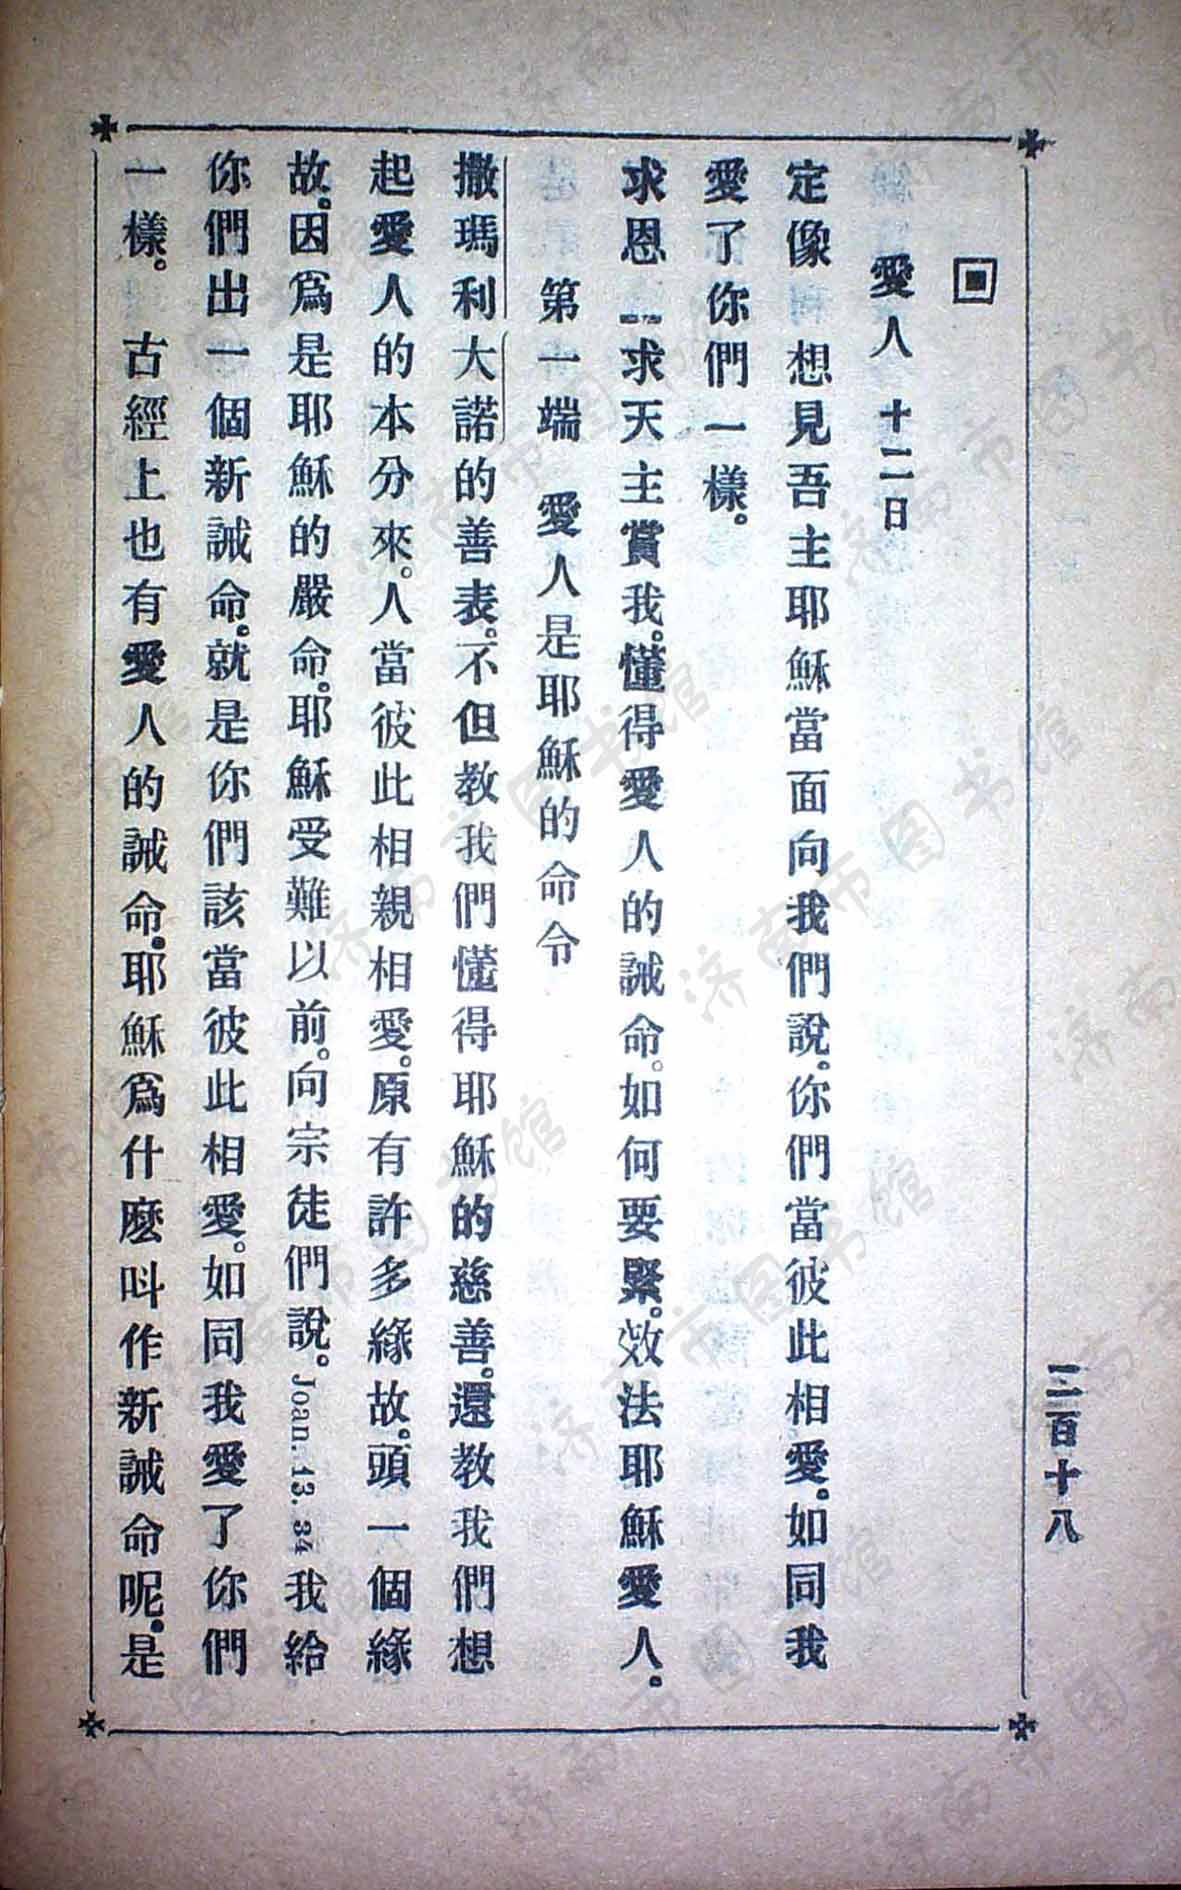 愛人 十二日
定像 想見吾主耶穌當面向我們說。你們當彼此相愛。如同我
愛了你們一樣。
求恩 求天主賞我。懂得愛人的誡命。如何要緊。效法耶穌愛人。
第一端 愛人是耶穌的命令
撒瑪利大諾的善表。不但教我們懂得耶穌的慈善。還教我們想
起愛人的本分來。人當彼此相親相愛。原有許多緣故。頭一個緣
故。因爲是耶穌的嚴命。耶穌受難以前。向宗徒們說。Joan. 13. 34 我給
你們出一個新誡命。就是你們該當彼此相愛。如同我愛了你們
一樣。 古經上也有愛人的誡命。耶穌爲什麽呌作新誡命呢。是
二百十八
济南市图书馆